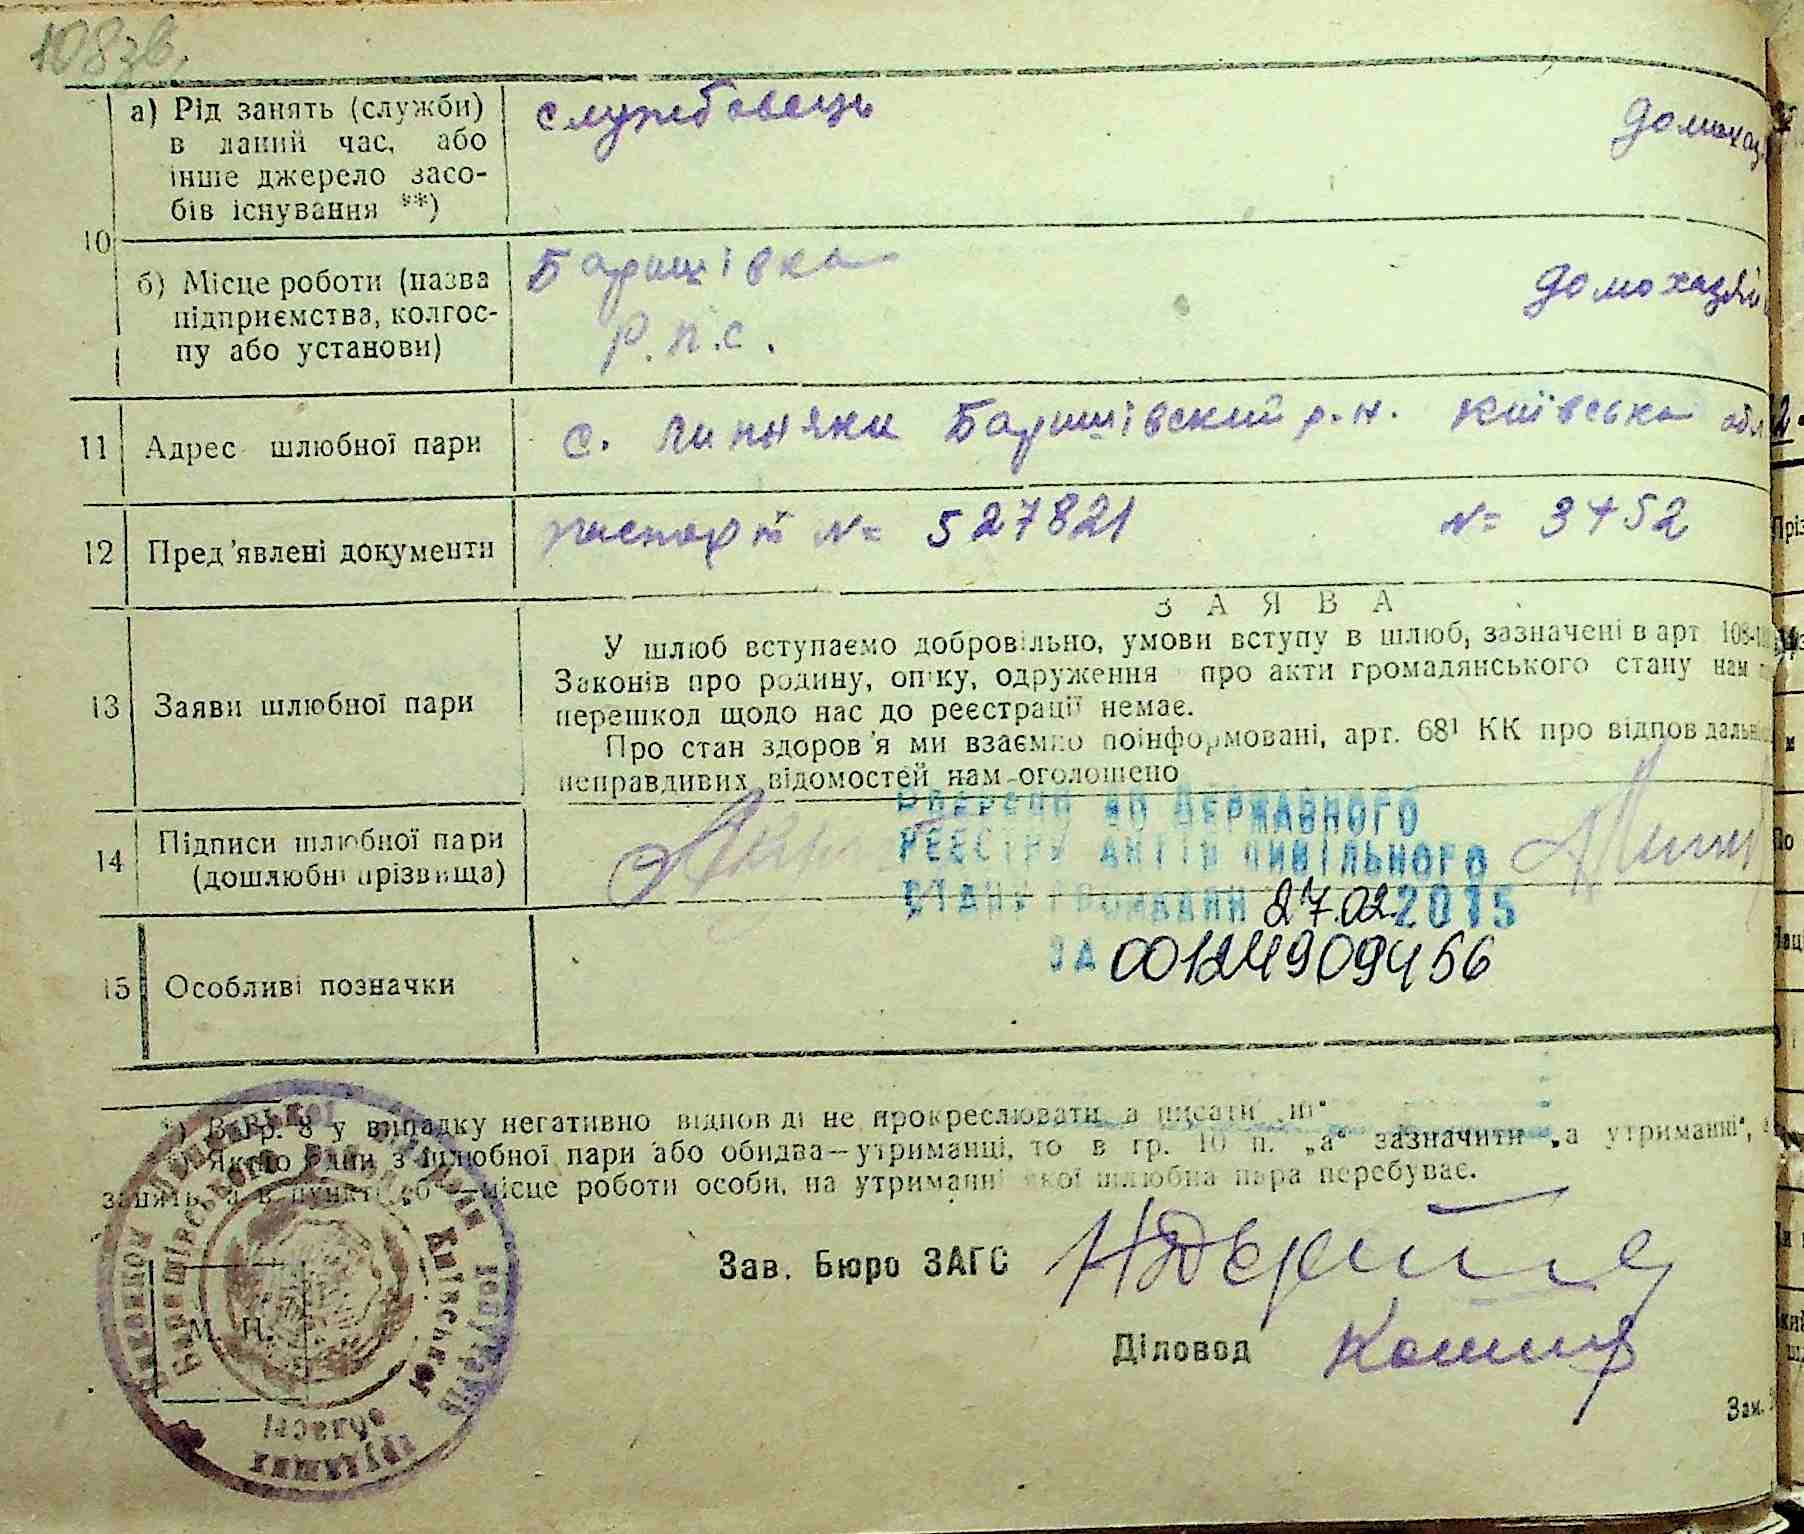 108зв.
а) Рід занять (служби)
в даний час, або
інше джерело засо-
бів існування **)
службовець
домохаз
10
б) Місце роботи (назва
підприємства, колгос-
пу або установи)
Баришівка
Р.п.с.
домохазяй
11 Адрес шлюбної пари
с. Липняки Баришівский р.н. Київська обл
12 Пред'явлені документи
паспорт № 527821 № 3452
ЗАЯВА
13 Заяви шлюбної пари
У шлюб вступаємо добровільно, умови вступу в шлюб, зазначені в арт 108-
Законів про родину, опіку, одруження про акти громадянського стану нам
перешкод щодо нас до реєстрації немає.
Про стан здоров'я ми взаємно поінформовані, арт. 68¹ КК про відповідальні
неправдивих відомостей нам оголошено
14 Підписи шлюбної пари
(дошлюбні прізвища)
Внесено до ДЕРЖАВНОГО
РЕЄСТРУ АКТІВ ЦИВІЛЬНОГО
СТАНУ ГРОМАДЯН 27.02.2015
ЗА 00124909456
15 Особливі позначки
*) В гр. 8 у випадку негативно відповіді не прокреслювати, а писати „ні“
Якщо один з шлюбної пари або обидва—утриманці, то в гр. 10 п. „а“ зазначити „а утриманні“,
занять, а в пункті „б“—місце роботи особи, на утриманні якої шлюбна пара перебуває.
Зав. Бюро ЗАГС
М. П.
Діловод
Баришівської
Київської
області
трудящих
депутатів
Зам.